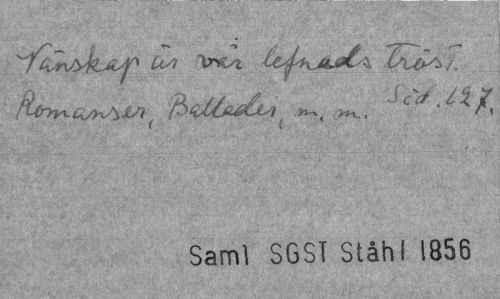 Vänskap är vår lefnads tröst.
Romanser, Ballader, m. m. Sid. 127.
Saml SGST Ståhl 1856